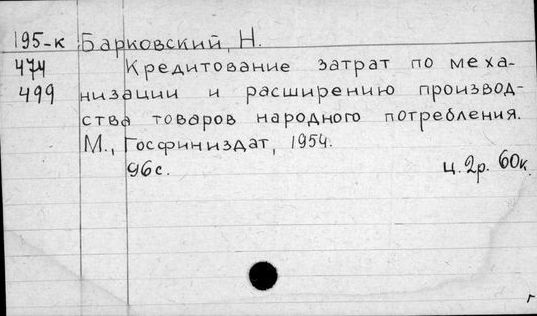 195-к Барковский, Н.
474 Кредитование затрат по меха-
499 низации и расширению производ-
ства товаров народного потребления.
М., Госфиниздат, 1954.
96 с. ц. 2р. 60к.
г